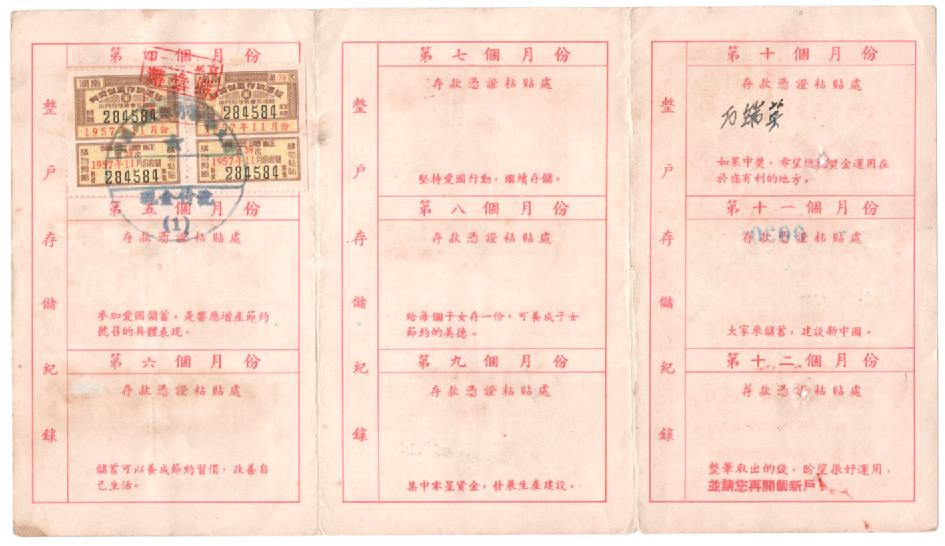 第四個月份
湖南
第39次
284584
284584
1957年11月份
7年11月份
39次
1957年11月份
1957年11月份
284584
284584
現金付訖
(1)
第五個月份
存款憑證粘貼處
參加愛國儲蓄，是響應增產節約
號召的具體表現。
第六個月份
存款憑證粘貼處
儲蓄可以養成節約習慣，改善自
己生活。
整戶存儲紀錄
第七個月份
存款憑證粘貼處
堅持愛國行動，繼續存儲。
第八個月份
存款憑證粘貼處
給每個子女存一份，可養成子女
節約的美德。
第九個月份
存款憑證粘貼處
集中零星資金，發展生產建設。
整戶存儲紀錄
第十個月份
存款憑證粘貼處
如果中獎，希望您將獎金運用在
於您有利的地方。
第十一個月份
存款憑證粘貼處
大家來儲蓄，建設新中國。
第十二個月份
存款憑證粘貼處
整筆取出的錢，盼望很好運用，
並請您再開個新戶！
整戶存儲紀錄